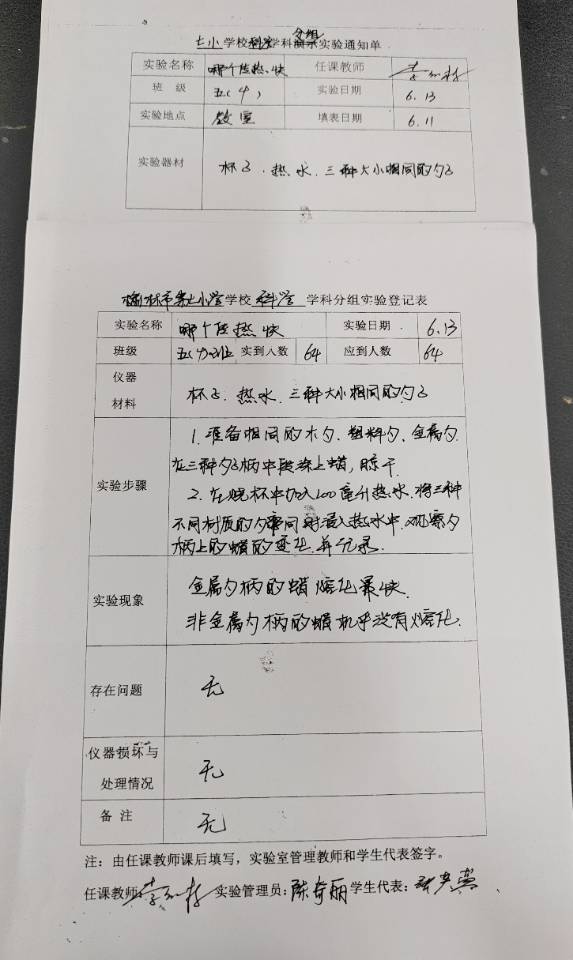 七小学校科学学科分组实验通知单
实验名称 哪个传热快 任课教师
班 级 五(4) 实验日期 6.13
实验地点 教室 填表日期 6.11
实验器材 杯子.热水.三种大小相同的勺子
榆林市第七小学学校 科学 学科分组实验登记表
实验名称 哪个传热快 实验日期 6.13
班级 五(4)班 实到人数 64 应到人数 64
仪器
材料
杯子.热水.三种大小相同的勺子
实验步骤
1.准备相同的木勺.塑料勺.金属勺.
在三种勺子柄中段涂上蜡,晾干.
2.在烧杯中加入100毫升热水.将三种
不同材质的勺同时浸入热水中.观察勺
柄上的蜡的变化.并记录.
实验现象
金属勺柄的蜡熔化最快.
非金属勺柄的蜡几乎没有熔化.
存在问题 无
仪器损坏与
处理情况
无
备 注 无
注:由任课教师课后填写,实验室管理教师和学生代表签字。
任课教师 实验管理员:陈奇丽 学生代表: